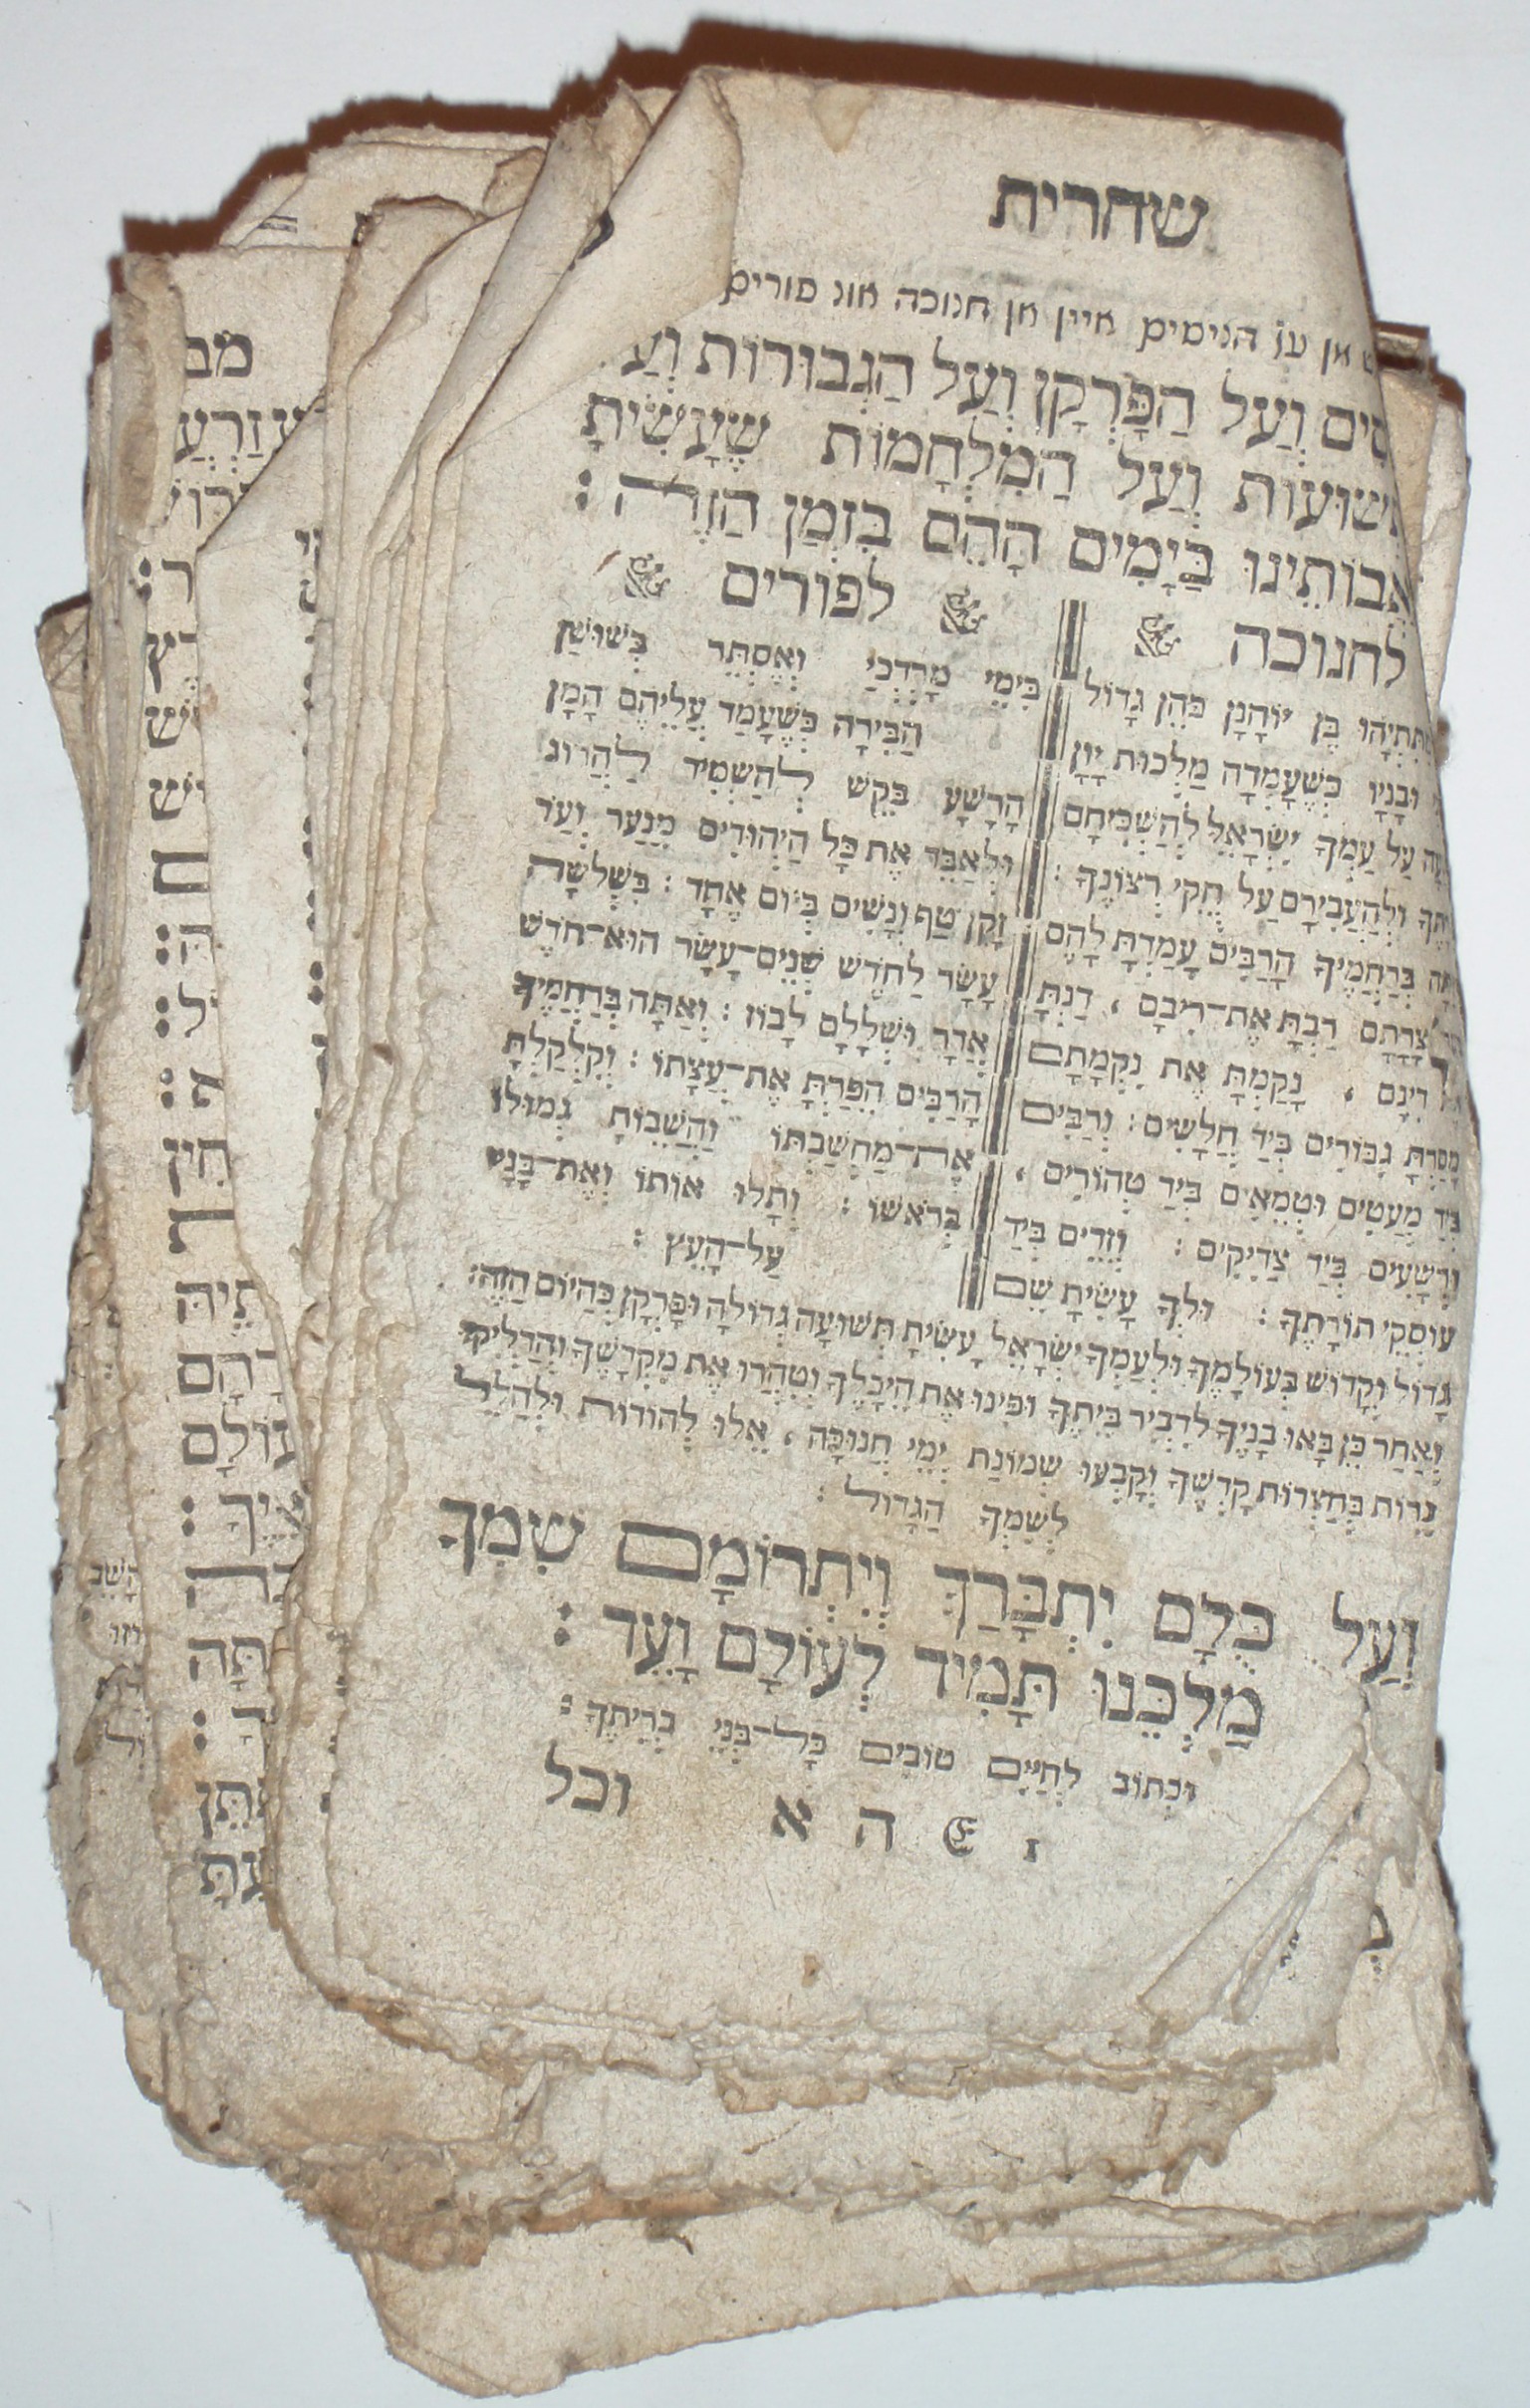 שחרית
אן עו הניסים זיין אן חנוכה אונ פורים
וְעַל הַפָּרְקָן וְעַל הַגְבוּרוֹת
וְעַל הַמִלְחָמוֹת שֶׁעָשִׂיתָ
אֲבוֹתֵינוּ בַּיָמִים הָהֵם בִּזְמַן הַזֶה :
לחנוכה
מַתִּתְיָהוּ בֶּן יוֹחָנָן כֹּהֵן גָדוֹל
וּבָנָיו כְּשֶׁעָמְדָה מַלְכוּת יָוָן
עַל עַמְךָ יִשְׂרָאֵל לְהַשְׁכִּיחָם
וּלְהַעֲבִירָם עַל חֻקֵי רְצוֹנֶךָ :
בְּרַחֲמֶיךָ הָרַבִּים עָמַדְתָּ לָהֶם
צָרָתָם רַבְתָּ אֶת־רִיבָם , דַנְתָּ
דִינָם , נָקַמְתָּ אֶת נִקְמָתָם
מָסַרְתָּ גִבּוֹרִים בְּיַד חֲלָשִׁים : וְרַבִּים
בְּיַד מְעַטִים וּטְמֵאִים בְּיַד טְהוֹרִים ,
וּרְשָׁעִים בְּיַד צַדִיקִים : וְזֵדִים בְּיַד
עוֹסְקֵי תוֹרָתֶךָ : וּלְךָ עָשִׂיתָ שֵׁם
לפורים
בִּימֵי מָרְדְכַי וְאֶסְתֵּר בְּשׁוּשַׁן
הַבִּירָה כְּשֶׁעָמַד עֲלֵיהֶם הָמָן
הָרָשָׁע בִּקֵשׁ לְהַשְׁמִיד לַהֲרוֹג
וּלְאַבֵּד אֶת כָּל הַיְהוּדִים מִנַעַר וְעַד
זָקֵן טַף וְנָשִׁים בְּיוֹם אֶחָד : בִּשְׁלֹשָׁה
עָשָׂר לַחֹדֶשׁ שְׁנֵים־עָשָׂר הוּא־חֹדֶשׁ
אֲדָר וּשְׁלָלָם לָבוֹז : וְאַתָּה בְּרַחֲמֶיךָ
הָרַבִּים הֵפַרְתָּ אֶת־עֲצָתוֹ : וְקִלְקַלְתָּ
אֶת־מַחֲשַׁבְתּוֹ וַהֲשֵׁבוֹתָ גְמוּלוֹ
בְּרֹאשׁוֹ : וְתָלוּ אוֹתוֹ וְאֶת־בָּנָיו
עַל־הָעֵץ :
גָדוֹל וְקָדוֹשׁ בְּעוֹלָמֶךָ וּלְעַמְךָ יִשְׂרָאֵל עָשִׂיתָ תְּשׁוּעָה גְדוֹלָה וּפָרְקָן כְּהַיוֹם הַזֶה :
וְאַחַר כֵּן בָּאוּ בָנֶיךָ לִדְבִיר בֵּיתֶךָ וּפִינוּ אֶת הֵיכָלֶךָ וְטִהֲרוּ אֶת מִקְדָשֶׁךָ וְהִדְלִיקוּ
נֵרוֹת בְּחַצְרוֹת קָדְשֶׁךָ וְקָבְעוּ שְׁמוֹנַת יְמֵי חֲנוּכָּה , אֵלוּ לְהוֹדוֹת וּלְהַלֵל
לְשִׁמְךָ הַגָדוֹל :
וְעַל כֻּלָם יִתְבָּרַךְ וְיִתְרוֹמָם שִׁמְךָ
מַלְכֵּנוּ תָּמִיד לְעוֹלָם וָעֶד :
וּכְתוֹב לְחַיִים טוֹבִים כָּל־בְּנֵי בְרִיתֶךָ :
ה א וכל